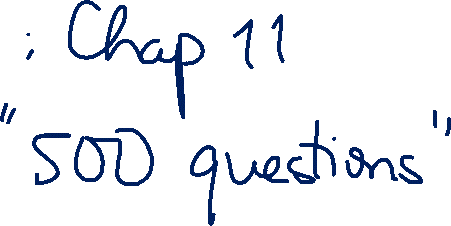 : Chap 11
"500 questions"